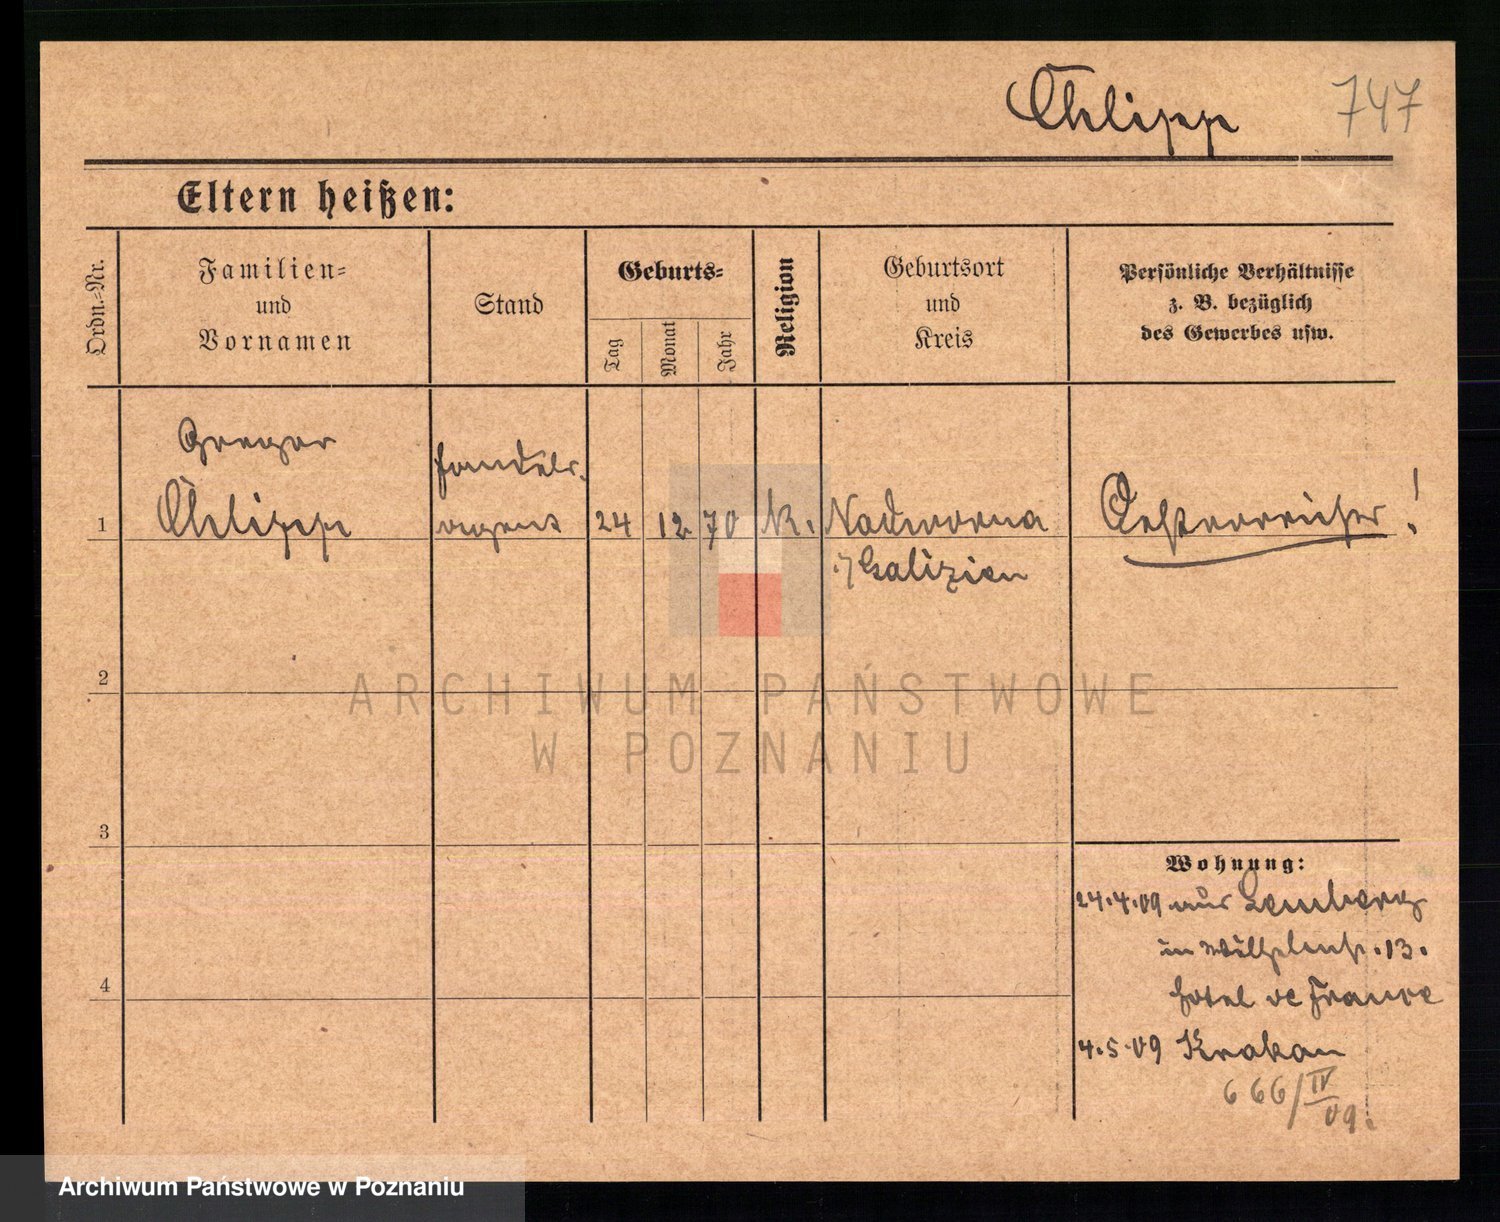 Chlipp 747
Eltern heißen:
Ordn.=Nr.
Familien=
und
Vornamen
Stand
Geburts=
Tag
Monat
Jahr
Religion
Geburtsort
und
Kreis
Persönliche Verhältnisse
z. B. bezüglich
des Gewerbes usw.
1
Gregor
Chlipp
Handels-
agent
24 12 70 k. Nadworna
i/ Galizien
Oesterreicher!
2
3
4
Wohnung:
24.4.09 aus Lemberg
in Wilhelmstr. 13.
Hotel de France
4.5.09 Krakau
666/IV
09.
ARCHIWUM PAŃSTWOWE
W POZNANIU
Archiwum Państwowe w Poznaniu